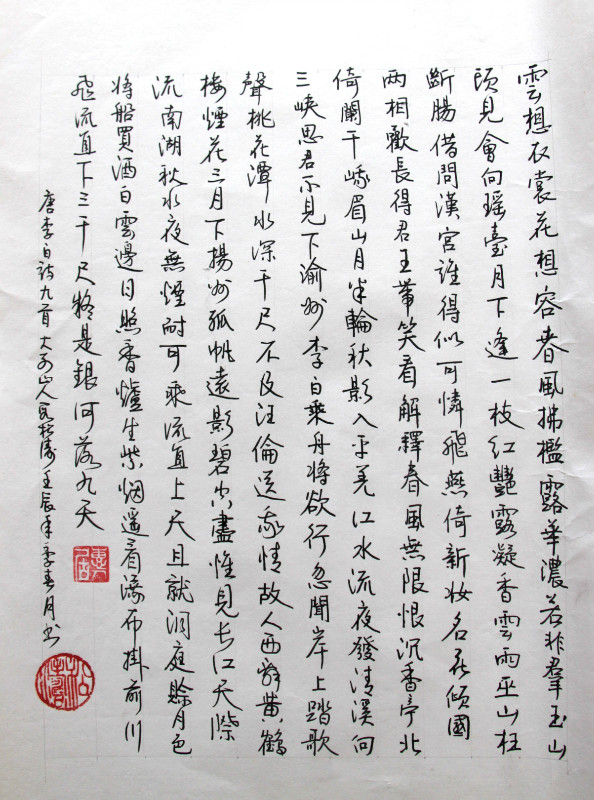 雲想衣裳花想容春風拂檻露華濃若非羣玉山
頭見會向瑶臺月下逢一枝紅艷露凝香雲雨巫山枉
斷腸借問漢宮誰得似可憐飛燕倚新妝名花傾國
两相歡長得君王帶笑看解釋春風無限恨沉香亭北
倚闌干峨眉山月半輪秋影入平羌江水流夜發清溪向
三峽思君不見下渝州李白乘舟將欲行忽聞岸上踏歌
聲桃花潭水深千尺不及汪倫送我情故人西辭黄鶴
樓煙花三月下揚州孤帆遠影碧空盡惟見長江天際
流南湖秋水夜無煙耐可乘流直上天且就洞庭賒月色
將船買酒白雲邊日照香爐生紫烟遥看瀑布掛前川
飛流直下三千尺疑是銀河落九天
唐李白詩九首 壬辰年季春月书